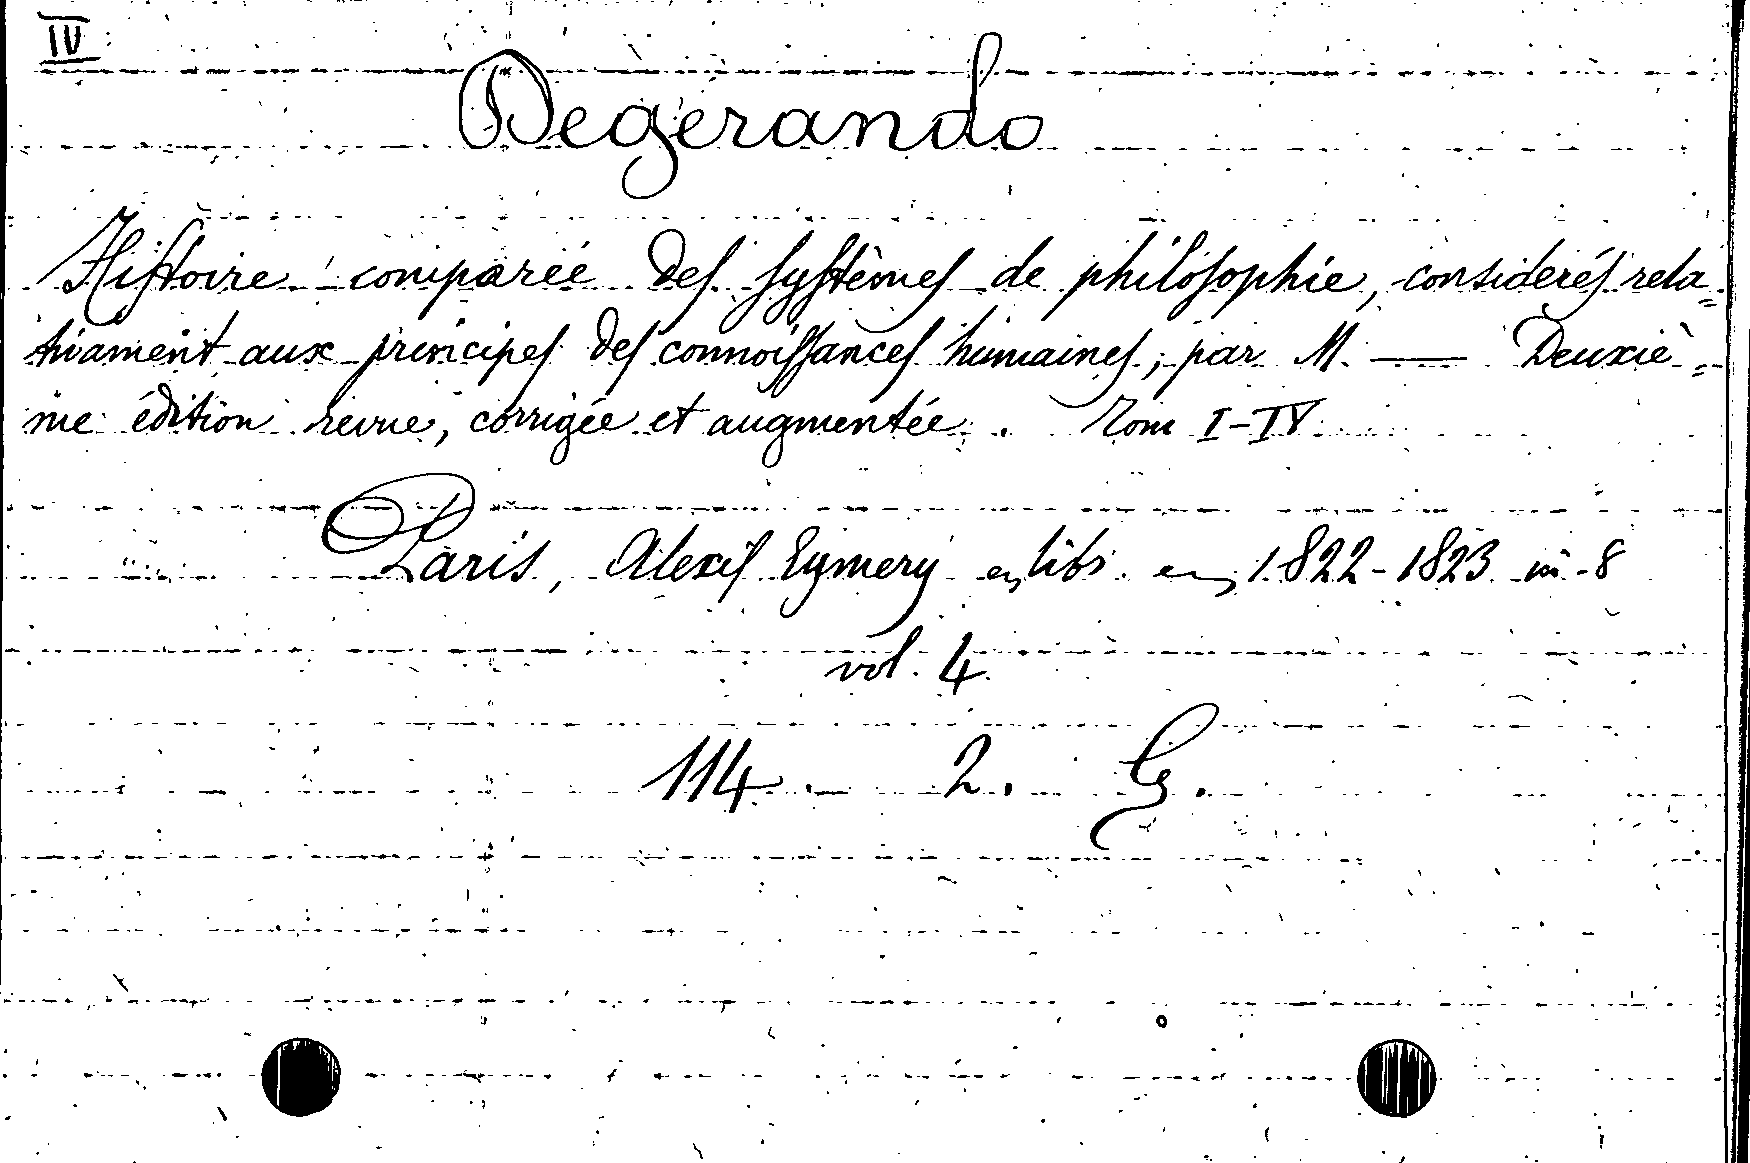 IV
Degerando
Histoire comparée des systèmes de philosophie, considerés rela=
tivament aux principes des connoissances humaines, par M. — Deuxiè=
me édition revue, corrigée et augmentée. Tom I-IV
Paris, Alexis Eymery libr. 1822-1823 in-8
vol. 4.
114 - 2. G.